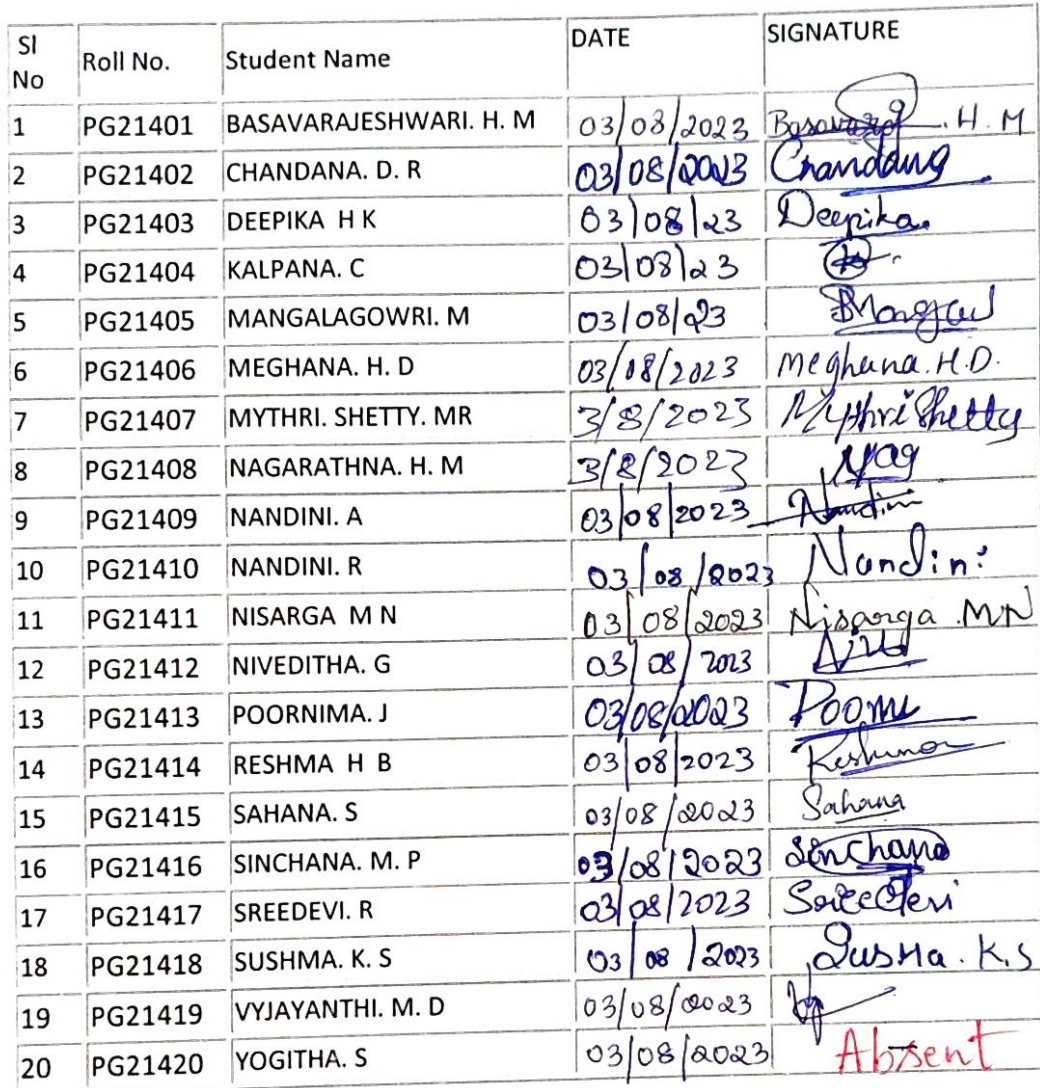 Sl No Roll No. Student Name DATE SIGNATURE
1 PG21401 BASAVARAJESHWARI. H. M 03/08/2023 H. M
2 PG21402 CHANDANA. D. R 03/08/2023 Chandana
3 PG21403 DEEPIKA H K 03/08/23 Deepika
4 PG21404 KALPANA. C 03/08/23
5 PG21405 MANGALAGOWRI. M 03/08/23
6 PG21406 MEGHANA. H. D 03/08/2023 Meghana.H.D.
7 PG21407 MYTHRI. SHETTY. MR 3/8/2023 Mythri Shetty
8 PG21408 NAGARATHNA. H. M 3/8/2023 Nag
9 PG21409 NANDINI. A 03/08/2023 Nandini
10 PG21410 NANDINI. R 03/08/2023 Nandini
11 PG21411 NISARGA M N 03/08/2023 Nisarga.MN
12 PG21412 NIVEDITHA. G 03/08/2023
13 PG21413 POORNIMA. J 03/08/2023
14 PG21414 RESHMA H B 03/08/2023 Reshma
15 PG21415 SAHANA. S 03/08/2023 Sahana
16 PG21416 SINCHANA. M. P 03/08/2023 Sinchana
17 PG21417 SREEDEVI. R 03/08/2023 SreeDevi
18 PG21418 SUSHMA. K. S 03/08/2023 K.S
19 PG21419 VYJAYANTHI. M. D 03/08/2023
20 PG21420 YOGITHA. S 03/08/2023 Absent